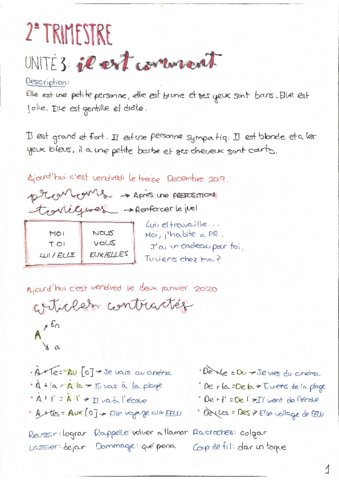 2º TRIMESTRE
UNITÉ 3: il est comment
Description:
Elle est une petite personne, elle est brune et ses yeux sont bruns. Elle est
jolie. Elle est gentille et drôle.
Il est grand et fort. Il est une personne sympatiq. Il est blonde et a les
yeux bleus, il a une petite barbe et ses cheveux sont courts.
Ajourd'hui c'est vendredi le treize Decembre 2019.
pronoms → Après une PREPOSITION
toniques → Renforcer le sujet
MOI NOUS
TOI VOUS
LUI/ELLE EUX/ELLES
Lui, el travaille...
Moi, j'habite a PR.
J'ai un cadeau por toi.
Tu viens chez moi?
Ajourd'hui c'est vendredi le deux janvier 2020
articles contractés
En
A
a
· À + le = Au [o] → Je vais au cinéma
· À + la = À la → Tu vas à la plage
· À + l' = À l' → Il va à l'école
· A + les = Aux [o] → Elle voyage aux EEUU
· De + le = Du → Je viens du cinéma
· De + la = De la → Tu viens de la plage
· De + l' = De l' → Il vient de l'école
· De + les = Des → Elle vollage de EEUU
Reussir: lograr Rappelle: volver a llamar Racrochez: colgar
Laisser: dejar Dommage: qué pena Coup de fil: dar un toque
1